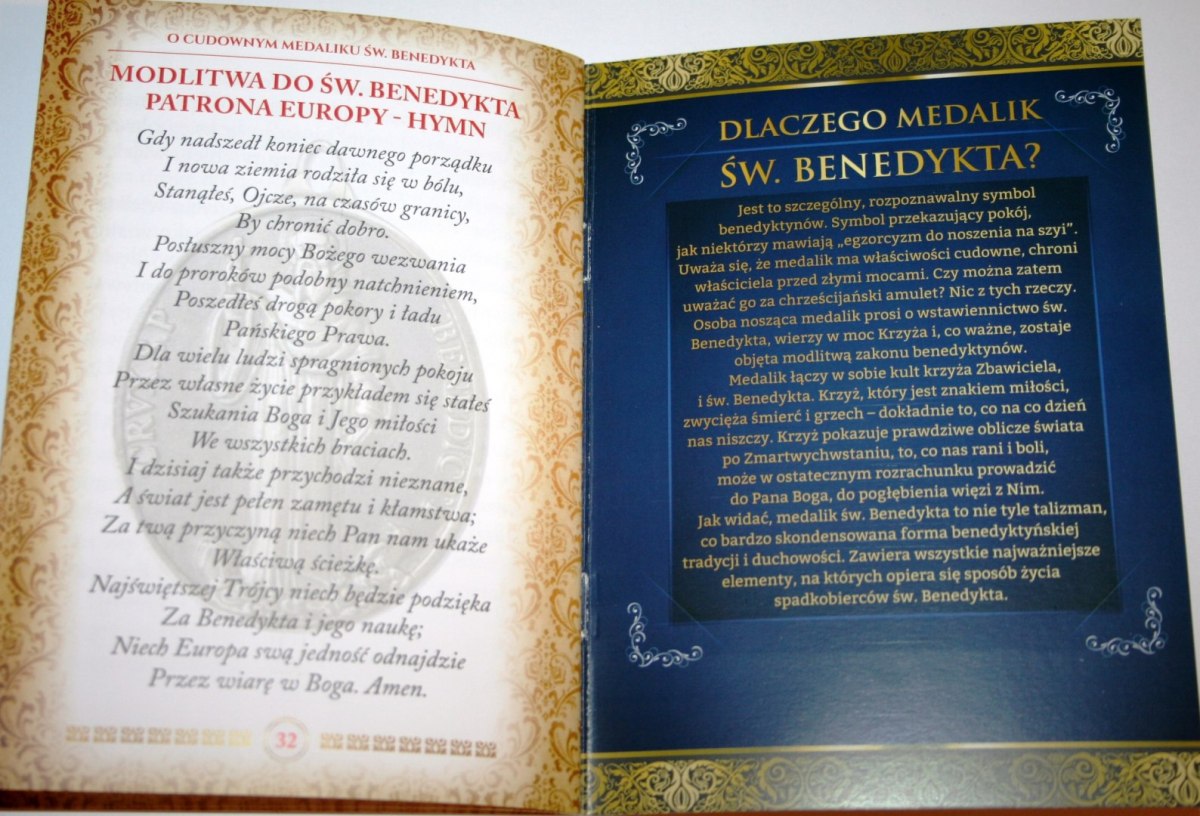 O CUDOWNYM MEDALIKU ŚW. BENEDYKTA
MODLITWA DO ŚW. BENEDYKTA
PATRONA EUROPY - HYMN
Gdy nadszedł koniec dawnego porządku
I nowa ziemia rodziła się w bólu,
Stanąłeś, Ojcze, na czasów granicy,
By chronić dobro.
Posłuszny mocy Bożego wezwania
I do proroków podobny natchnieniem,
Poszedłeś drogą pokory i ładu
Pańskiego Prawa.
Dla wielu ludzi spragnionych pokoju
Przez własne życie przykładem się stałeś
Szukania Boga i Jego miłości
We wszystkich braciach.
I dzisiaj także przychodzi nieznane,
A świat jest pełen zamętu i kłamstwa;
Za twą przyczyną niech Pan nam ukaże
Właściwą ścieżkę.
Najświętszej Trójcy niech będzie podzięka
Za Benedykta i jego naukę;
Niech Europa swą jedność odnajdzie
Przez wiarę w Boga. Amen.
32
DLACZEGO MEDALIK
ŚW. BENEDYKTA?
Jest to szczególny, rozpoznawalny symbol
benedyktynów. Symbol przekazujący pokój,
jak niektórzy mawiają „egzorcyzm do noszenia na szyi”.
Uważa się, że medalik ma właściwości cudowne, chroni
właściciela przed złymi mocami. Czy można zatem
uważać go za chrześcijański amulet? Nic z tych rzeczy.
Osoba nosząca medalik prosi o wstawiennictwo św.
Benedykta, wierzy w moc Krzyża i, co ważne, zostaje
objęta modlitwą zakonu benedyktynów.
Medalik łączy w sobie kult krzyża Zbawiciela,
i św. Benedykta. Krzyż, który jest znakiem miłości,
zwycięża śmierć i grzech – dokładnie to, co na co dzień
nas niszczy. Krzyż pokazuje prawdziwe oblicze świata
po Zmartwychwstaniu, to, co nas rani i boli,
może w ostatecznym rozrachunku prowadzić
do Pana Boga, do pogłębienia więzi z Nim.
Jak widać, medalik św. Benedykta to nie tyle talizman,
co bardzo skondensowana forma benedyktyńskiej
tradycji i duchowości. Zawiera wszystkie najważniejsze
elementy, na których opiera się sposób życia
spadkobierców św. Benedykta.